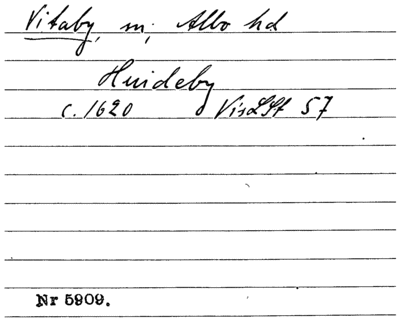 Vitaby, sn, Albo hd
Huideby
c. 1620 VisLSt 57
Nr 5909.